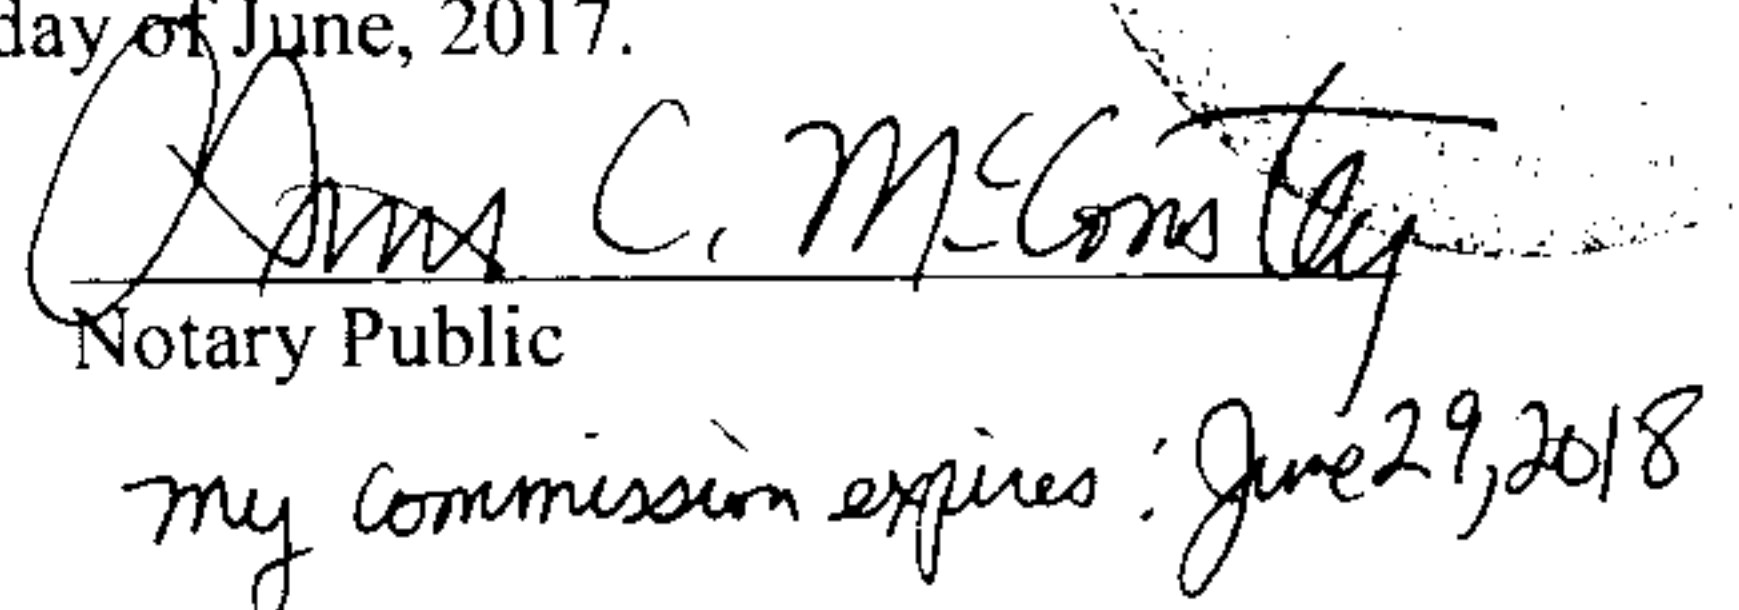 day of June, 2017.
C. McConstey
Notary Public
My Commission expires: June 29, 2018